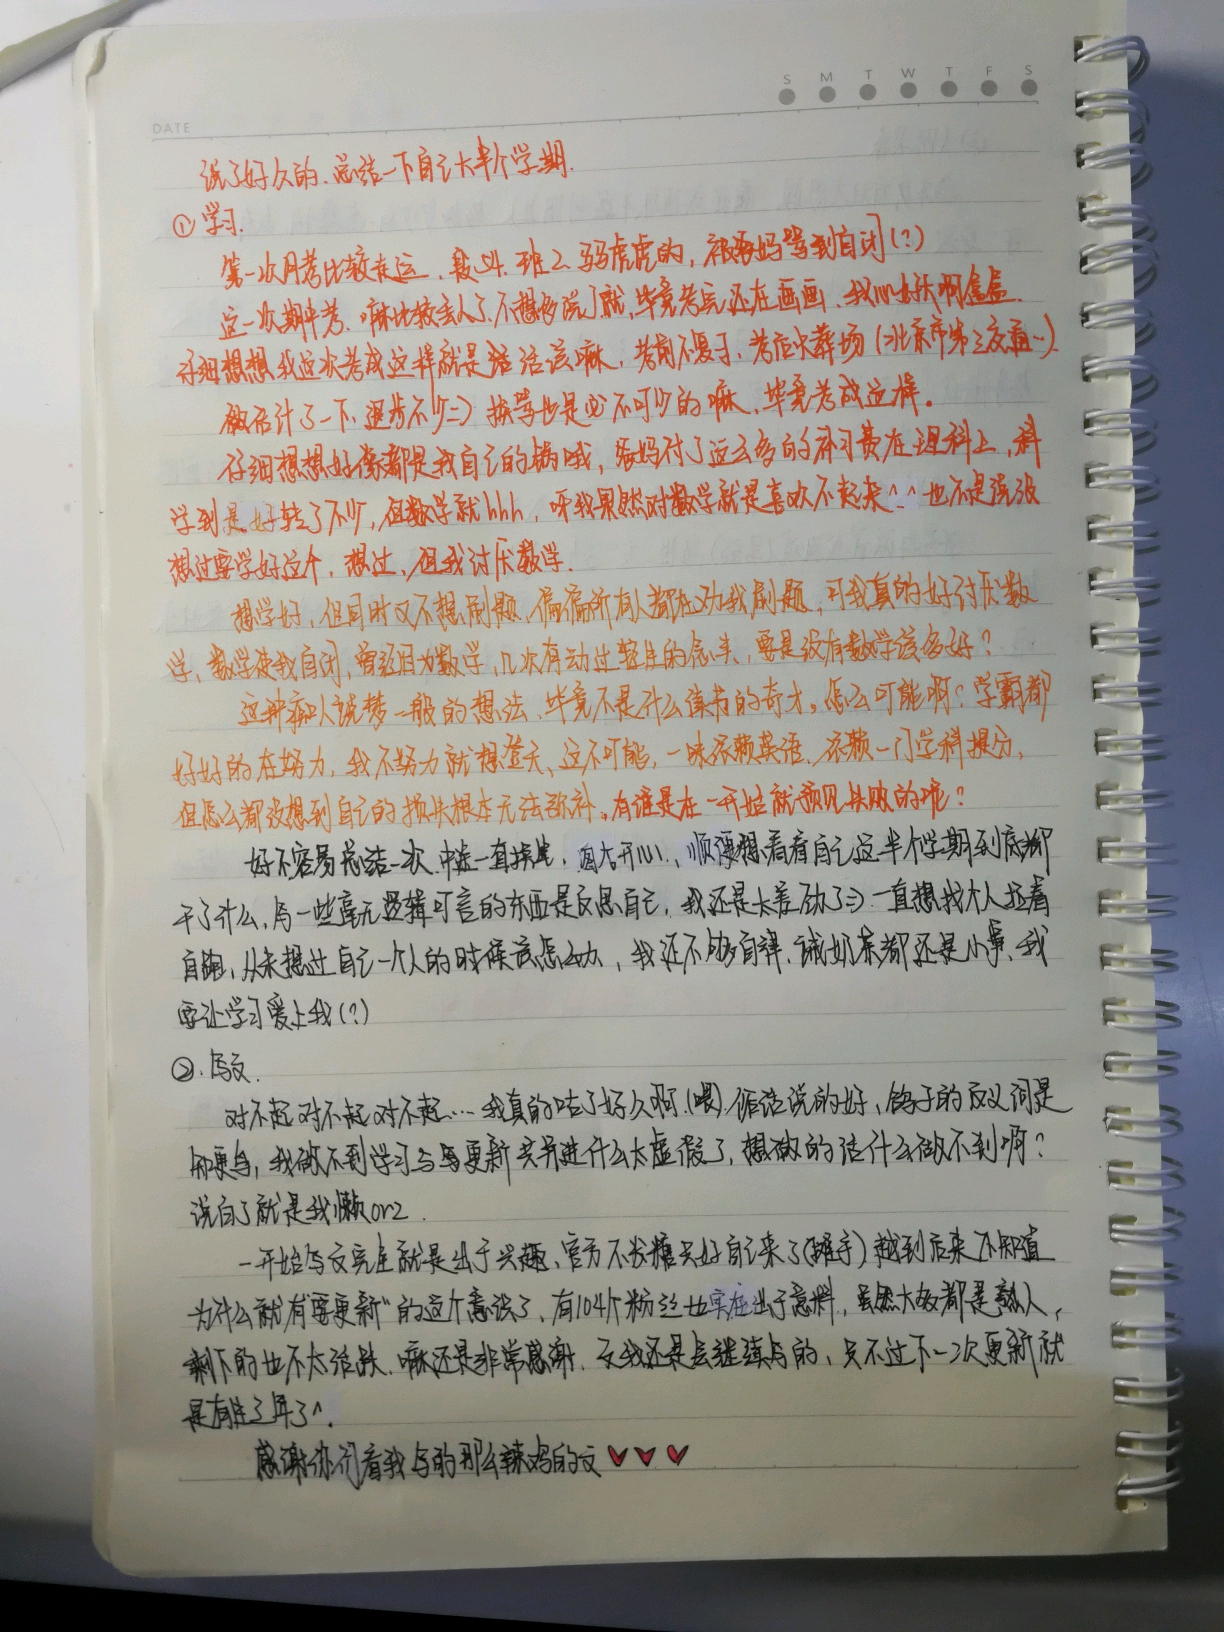 S M T W T F S
DATE
说了好久的、总结一下自己大半个学期.
① 学习.
第一次月考比较走运、段 班2、马马虎虎的，被 妈骂到自闭(?)
这一次期中考、嘛比较丢人了、不想多说了就，毕竟考完还在画画、我心好大啊
仔细想想我这次考成这样就是活话该嘛，考前不复习、考后火葬场（
被估计了一下、退步不少=)挨骂也是必不可少的嘛、毕竟考成这样。
仔细想想好像都是我自己的锅哦，张妈付了这么多的补习费在理科上，科
学到是好转了不少，但数学就hhh，呀我果然对数学就是喜欢不起来^_^也不是说没
想过要学好这个，想过、但我讨厌数学.
想学好，但同时又不想刷题、偏偏所有人都在劝我刷题，可我真的好讨厌数
学，数学使我自闭，曾经因为数学，几次有动过轻生的念头、要是没有数学该多好？
这种痴人说梦一般的想法、毕竟不是什么读书的奇才。怎么可能啊？学霸都
好好的在努力，我不努力就想登天、这不可能，一味依赖英语、依赖一门学科提分、
但怎么都没想到自己的损失根本无法弥补。有谁是在一开始就预见失败的呢？
好不容易总结一次、中途一直掉笔， 开心、顺便想看看自己这半个学期到底都
干了什么，与一些毫无逻辑可言的东西是反思自己，我还是太差劲了=)一直想找大人拉着
自跑，从未想过自己一个人的时候该怎么办，我还不够自律、 奶茶都还是小事、我
要让学习爱上我(?)
②.写文.
对不起对不起对不起…我真的咕了好久啊(喂).俗话说的好，鸽子的反义词是
 更鸟，我做不到学习与写更新共并进什么太虚假了，想做的话什么做不到啊？
说白了就是我懒orz.
一开始写文完全就是出于兴趣、官方不发糖只好自己来了(摊手)越到后来不知道
为什么就有“要更新”的这个意识了，有104个粉丝也实在出于意料，虽然大多都是熟人，
剩下的也不太活跃、嘛还是非常感谢、文我还是会继续写的，只不过下一次更新就
是有生之年了^.
感谢你们看我写的那么辣鸡的文♥♥♥